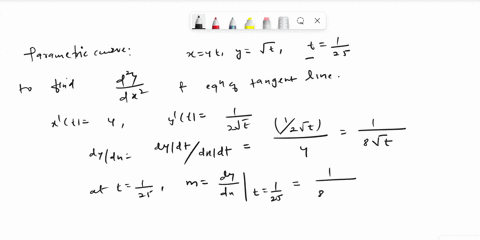 Parametric curve: x=4t, y=√t, t=1/25
to find d²y/dx² & eqn of tangent line.
x'(t)= 4, y'(t)= 1/2√t
dy/dx= dy/dt/dx/dt = (1/2√t)/4 = 1/8√t
at t=1/25, m= dy/dx|t=1/25 = 1/8